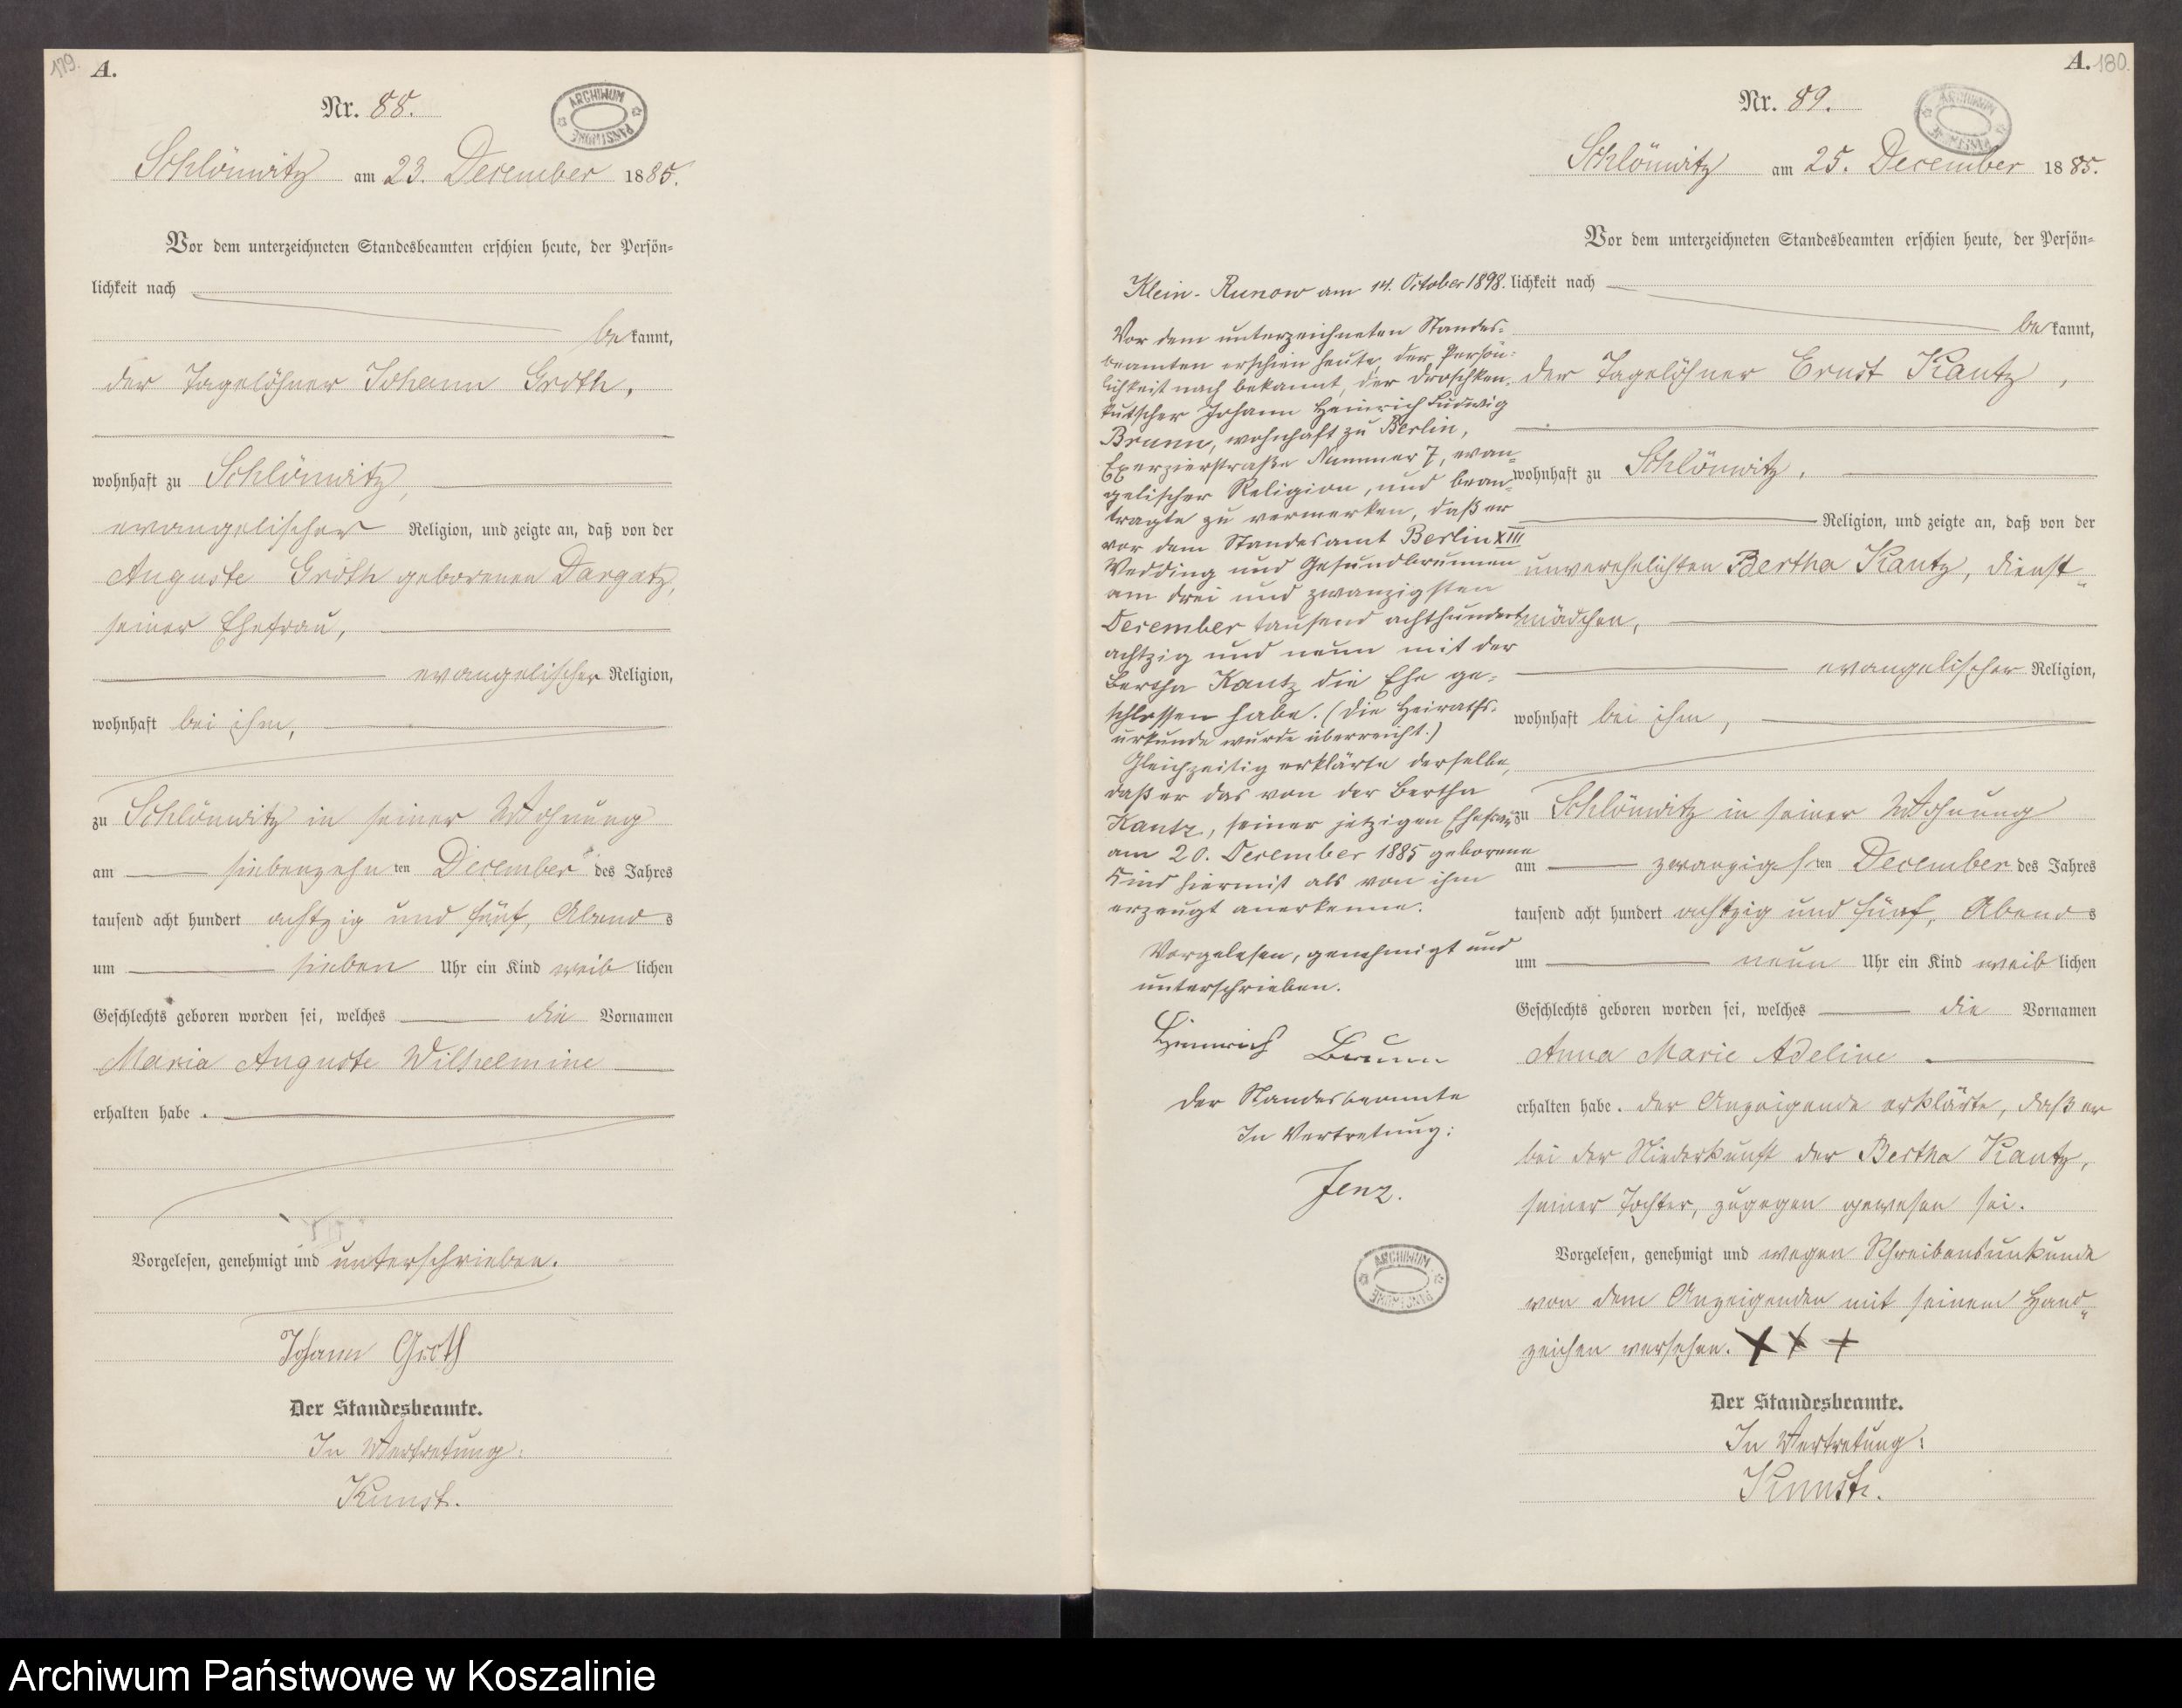 179.
A.
Nr. 88.
ARCHIWUM
PAŃSTWOWE
Schlönwitz am 23. December 1885.
Vor dem unterzeichneten Standesbeamten erschien heute, der Persön-
lichkeit nach
bekannt,
der Tagelöhner Johann Groth,
wohnhaft zu Schlönwitz,
evangelischer Religion, und zeigte an, daß von der
Auguste Groth geborenen Dargatz,
seiner Ehefrau,
evangelischer Religion,
wohnhaft bei ihm,
zu Schlönwitz in seiner Wohnung
am siebenzehn ten December des Jahres
tausend acht hundert achtzig und fünf, Abends
um sieben Uhr ein Kind weiblichen
Geschlechts geboren worden sei, welches die Vornamen
Maria Auguste Wilhelmine
erhalten habe.
Vorgelesen, genehmigt und unterschrieben.
Johann Groth
Der Standesbeamte.
In Vertretung:
Kunst.
A. 180.
Nr. 89.
Schlönwitz am 25. December 1885.
Vor dem unterzeichneten Standesbeamten erschien heute, der Persön-
lichkeit nach
bekannt,
der Tagelöhner Ernst Kautz,
wohnhaft zu Schlönwitz,
Religion, und zeigte an, daß von der
unverehelichten Bertha Kautz, Dienst-
mädchen,
evangelischer Religion,
wohnhaft bei ihm,
zu Schlönwitz in seiner Wohnung
am zwanzigsten December des Jahres
tausend acht hundert achtzig und fünf, Abends
um neun Uhr ein Kind weiblichen
Geschlechts geboren worden sei, welches die Vornamen
Anna Marie Adeline
erhalten habe. Der Anzeigende erklärte, daß er
bei der Niederkunft der Bertha Kautz,
seiner Tochter, zugegen gewesen sei.
Vorgelesen, genehmigt und wegen Schreibensunkunde
von dem Anzeigenden mit seinem Hand-
zeichen versehen. XXX
Der Standesbeamte.
In Vertretung:
Kunst.
Klein-Runow am 14. October 1898.
Vor dem unterzeichneten Standes-
beamten erschien heute, der Persön-
lichkeit nach bekannt, der Droschken-
kutscher Johann Heinrich Ludwig
Brunn, wohnhaft zu Berlin,
Exerzierstraße Nummer 7, evan-
gelischer Religion, und bean-
tragte zu vermerken, daß er
vor dem Standesamt Berlin XIII
Wedding und Gesundbrunnen
am drei und zwanzigsten
December tausend achthundert
achtzig und neun mit der
Bertha Kautz die Ehe ge-
schlossen habe. (Die Heiraths-
urkunde wurde überreicht.)
Gleichzeitig erklärte derselbe,
daß er das von der Bertha
Kautz, seiner jetzigen Ehefrau
am 20. December 1885 geborene
Kind hiermit als von ihm
erzeugt anerkenne.
Vorgelesen, genehmigt und
unterschrieben.
Heinrich Brunn
Der Standesbeamte
In Vertretung:
Jenz.
ARCHIWUM
PAŃSTWOWE
Archiwum Państwowe w Koszalinie